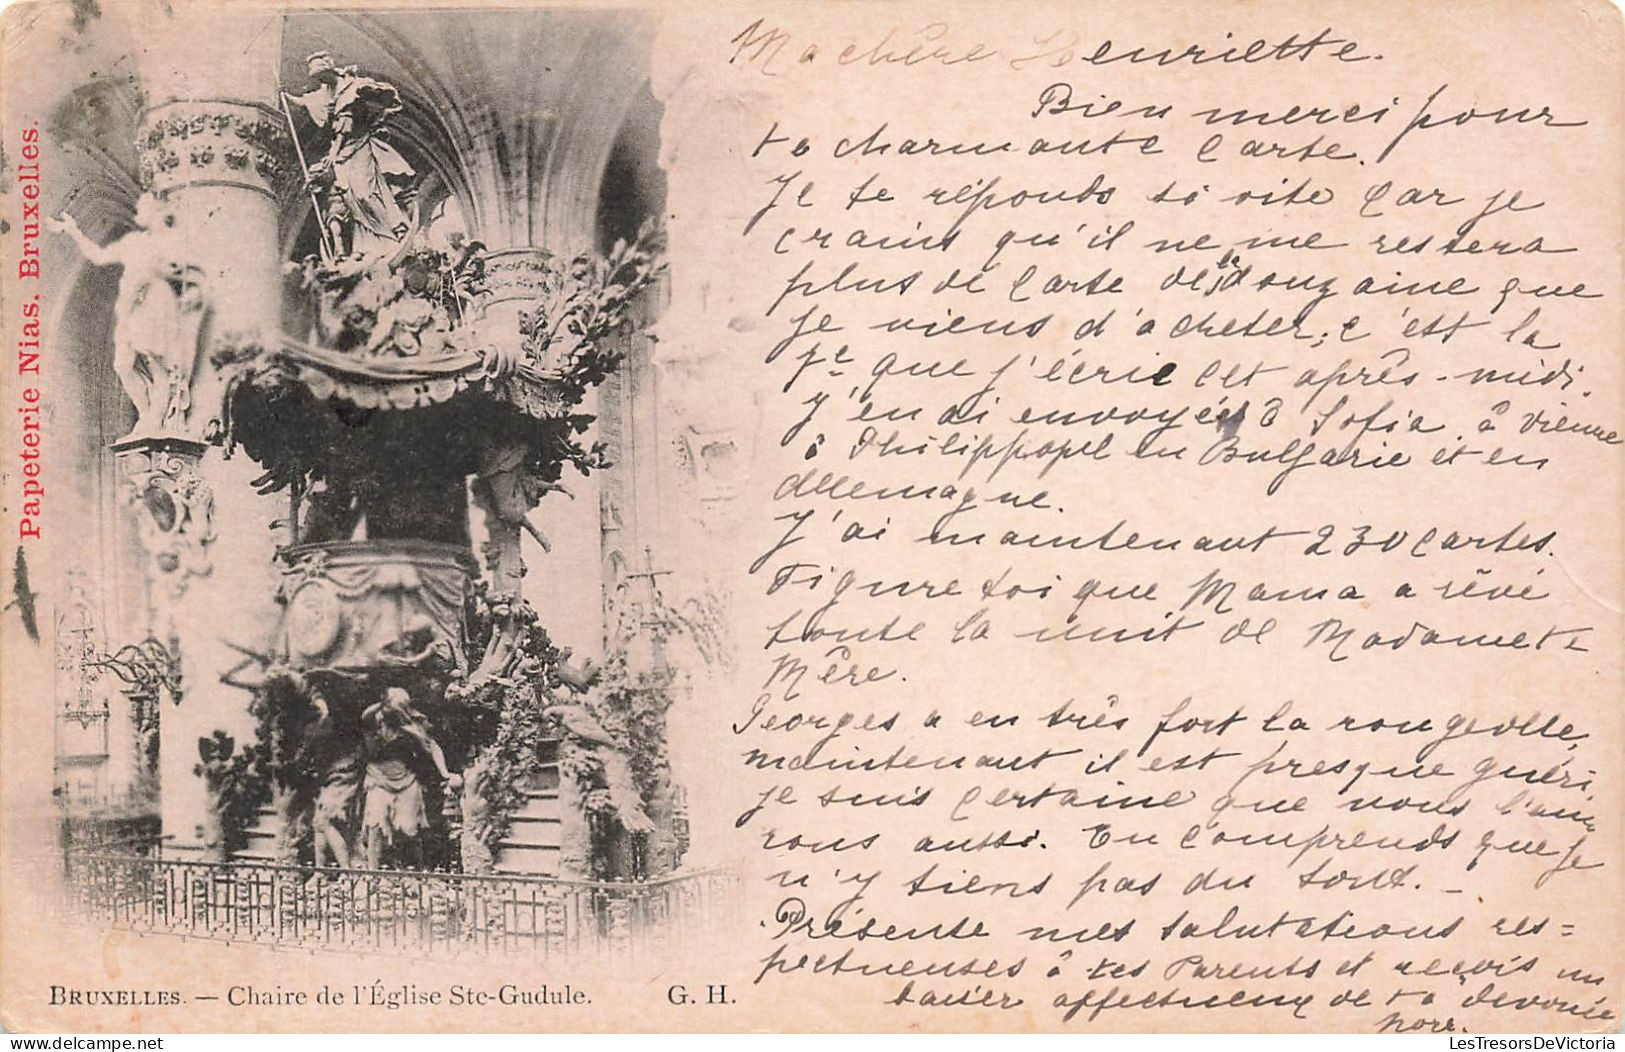 Papeterie Nias. Bruxelles.
Ma chère Henriette.
Bien merci pour
ta charmante Carte.
Je te réponds si vite Car je
crains qu'il ne me restera
plus de Carte de la douzaine que
je viens d'acheter; c'est la
que j'écris cet après-midi.
J'en ai envoyées à Sofia, à Vienne
à Philippopel en Bulgarie et en
Allemagne.
J'ai maintenant 230 Cartes.
Figure toi que Mama a rêvé
toute la nuit de Madame ta
Mère.
Georges a en très fort la rougeolle,
maintenant il est presque guéri
je suis Certaine que nous l'au
rons aussi. Tu Comprends que je
n'y tiens pas du tout. -
Présente mes salutations res=
pectueuses à tes Parents et reçois un
baiser affectueux de ta dévouée
BRUXELLES. — Chaire de l'Église Ste-Gudule.
G. H.
LesTresorsDeVictoria